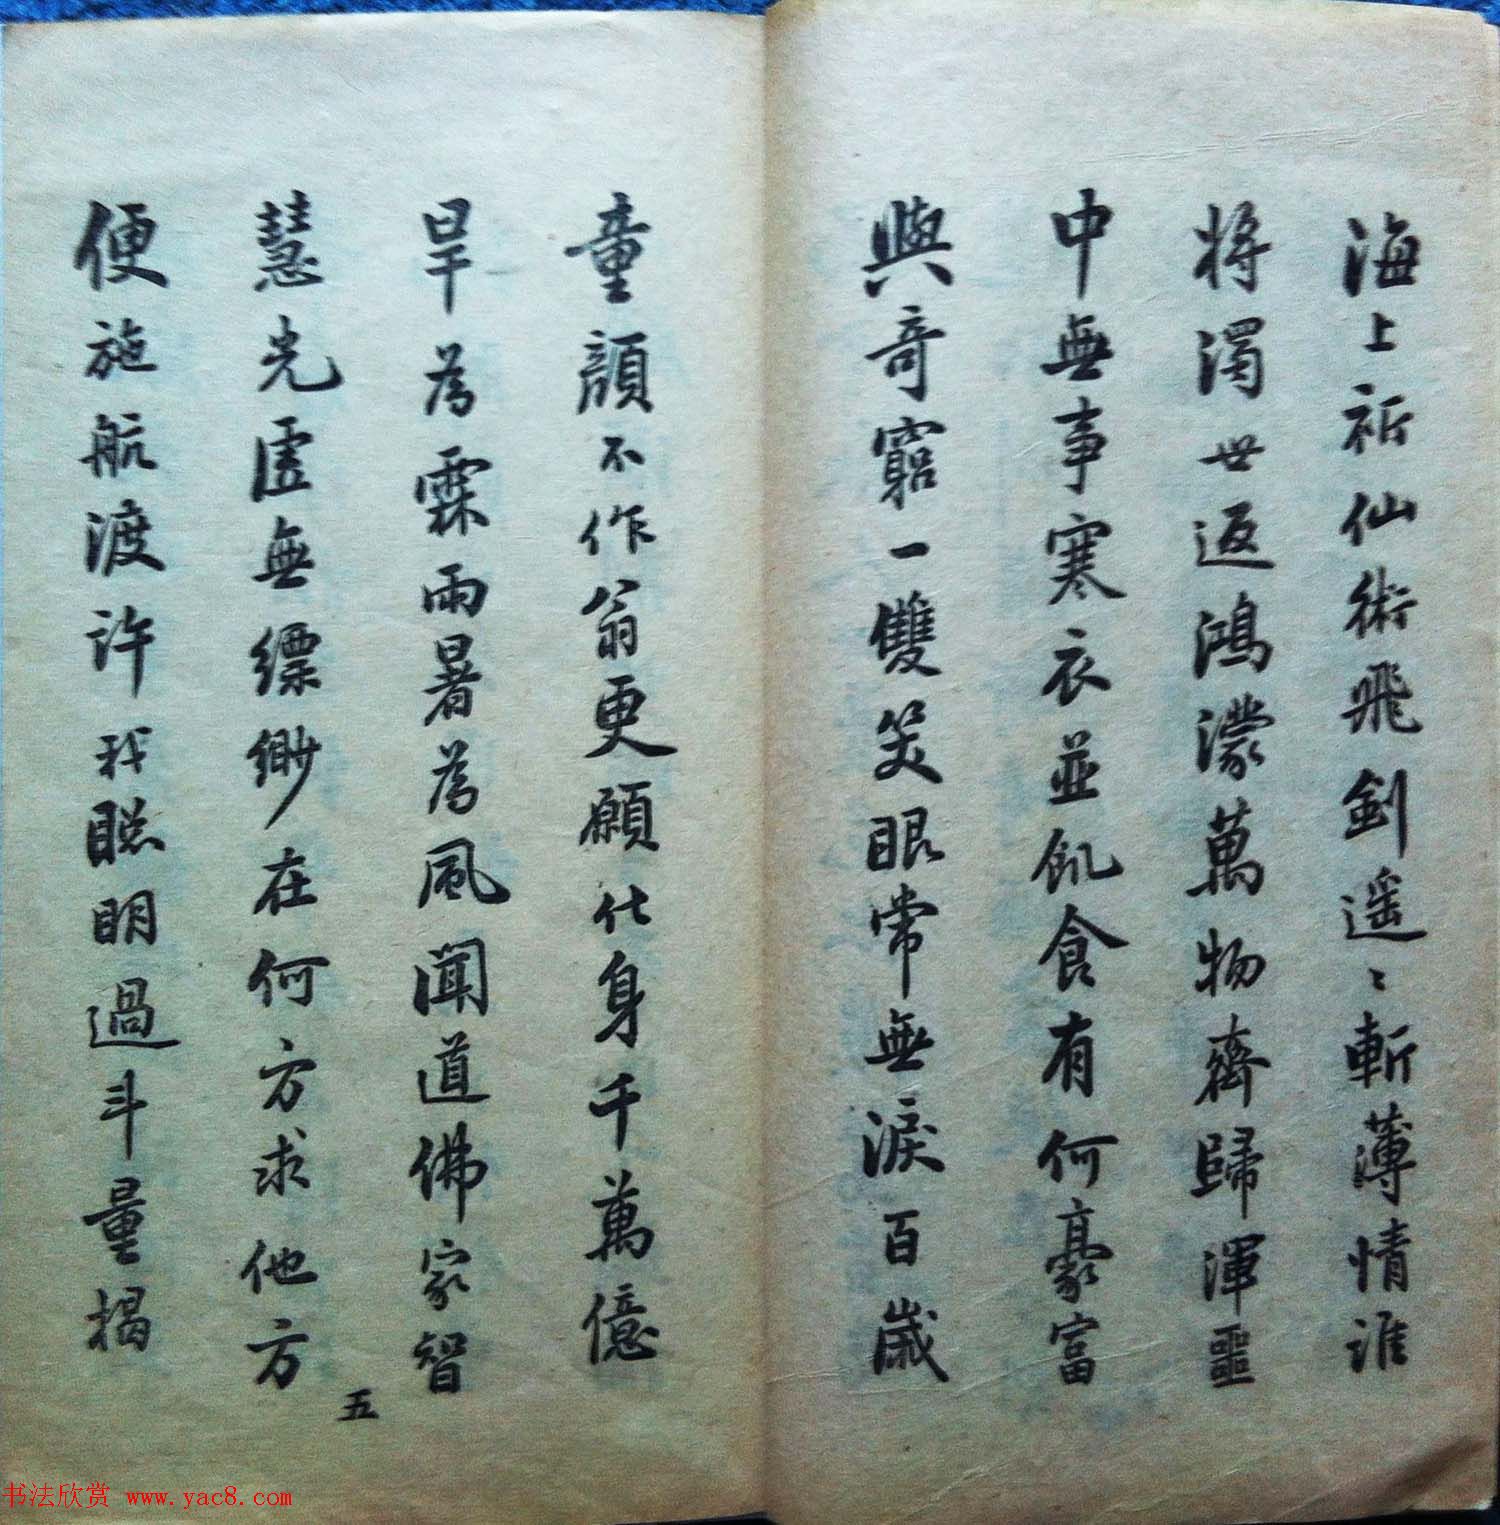 海上祈仙術飛劍遥々斬薄情誰
將濁世返鴻濛萬物齊歸渾噩
中無事寒衣並飢食有何豪富
與奇窮一雙笑眼常無淚百歲
童顏不作翁更願化身千萬億
旱為霖雨暑為風聞道佛家智
慧光虛無縹緲在何方求他方
便施航渡許我聰明過斗量揭
五
书法欣赏 www.yac8.com